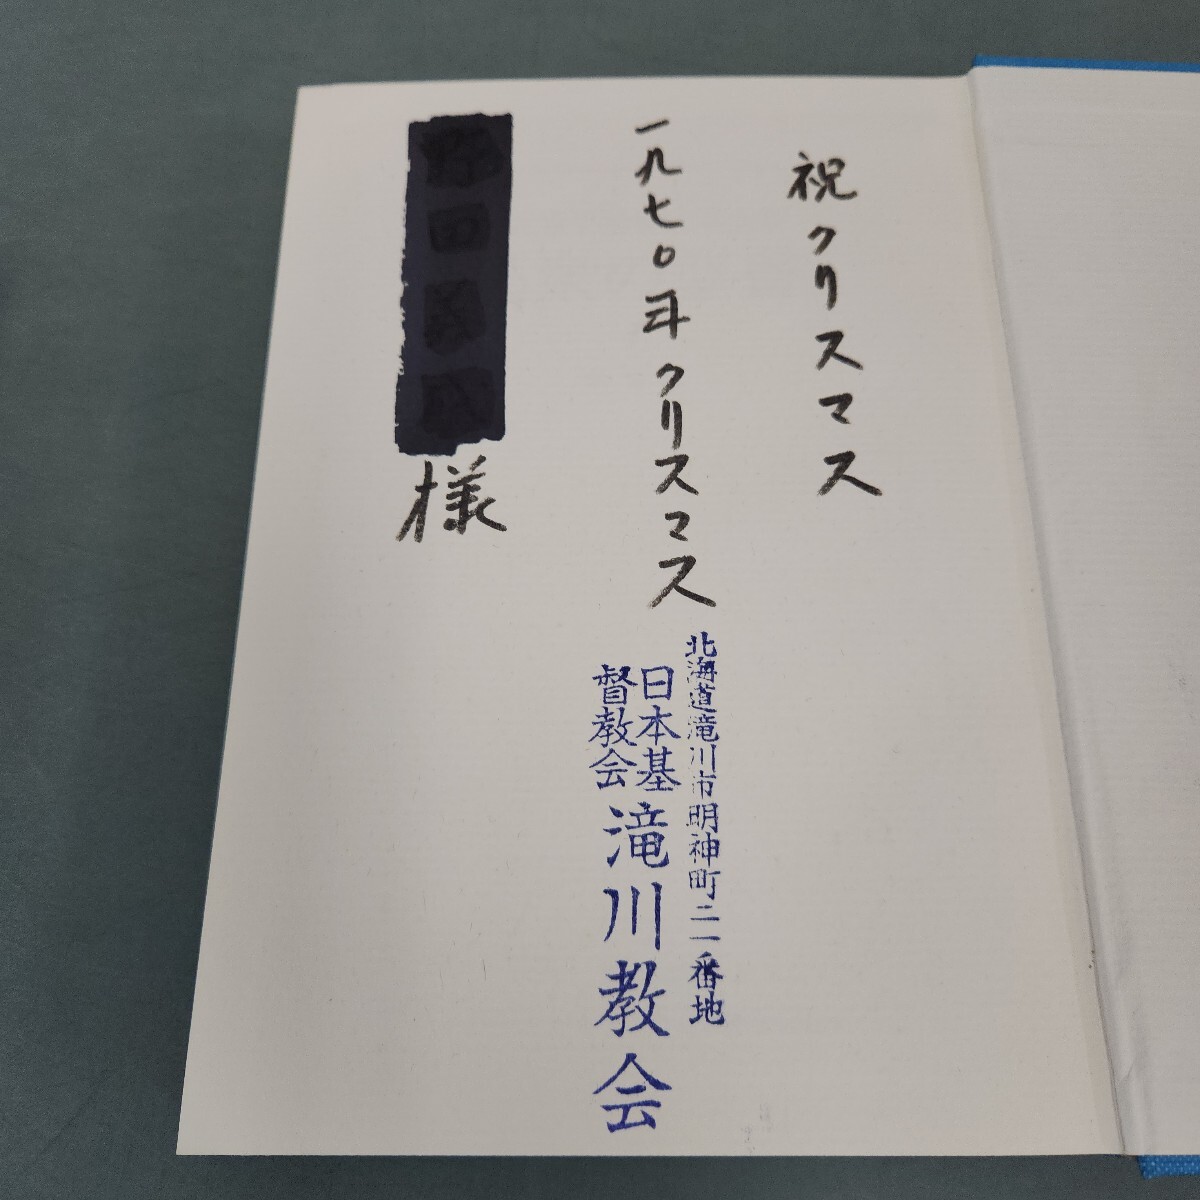 祝クリスマス
一九七〇年クリスマス
北海道滝川市明神町二一番地
日本基
督教会
滝川教会
様